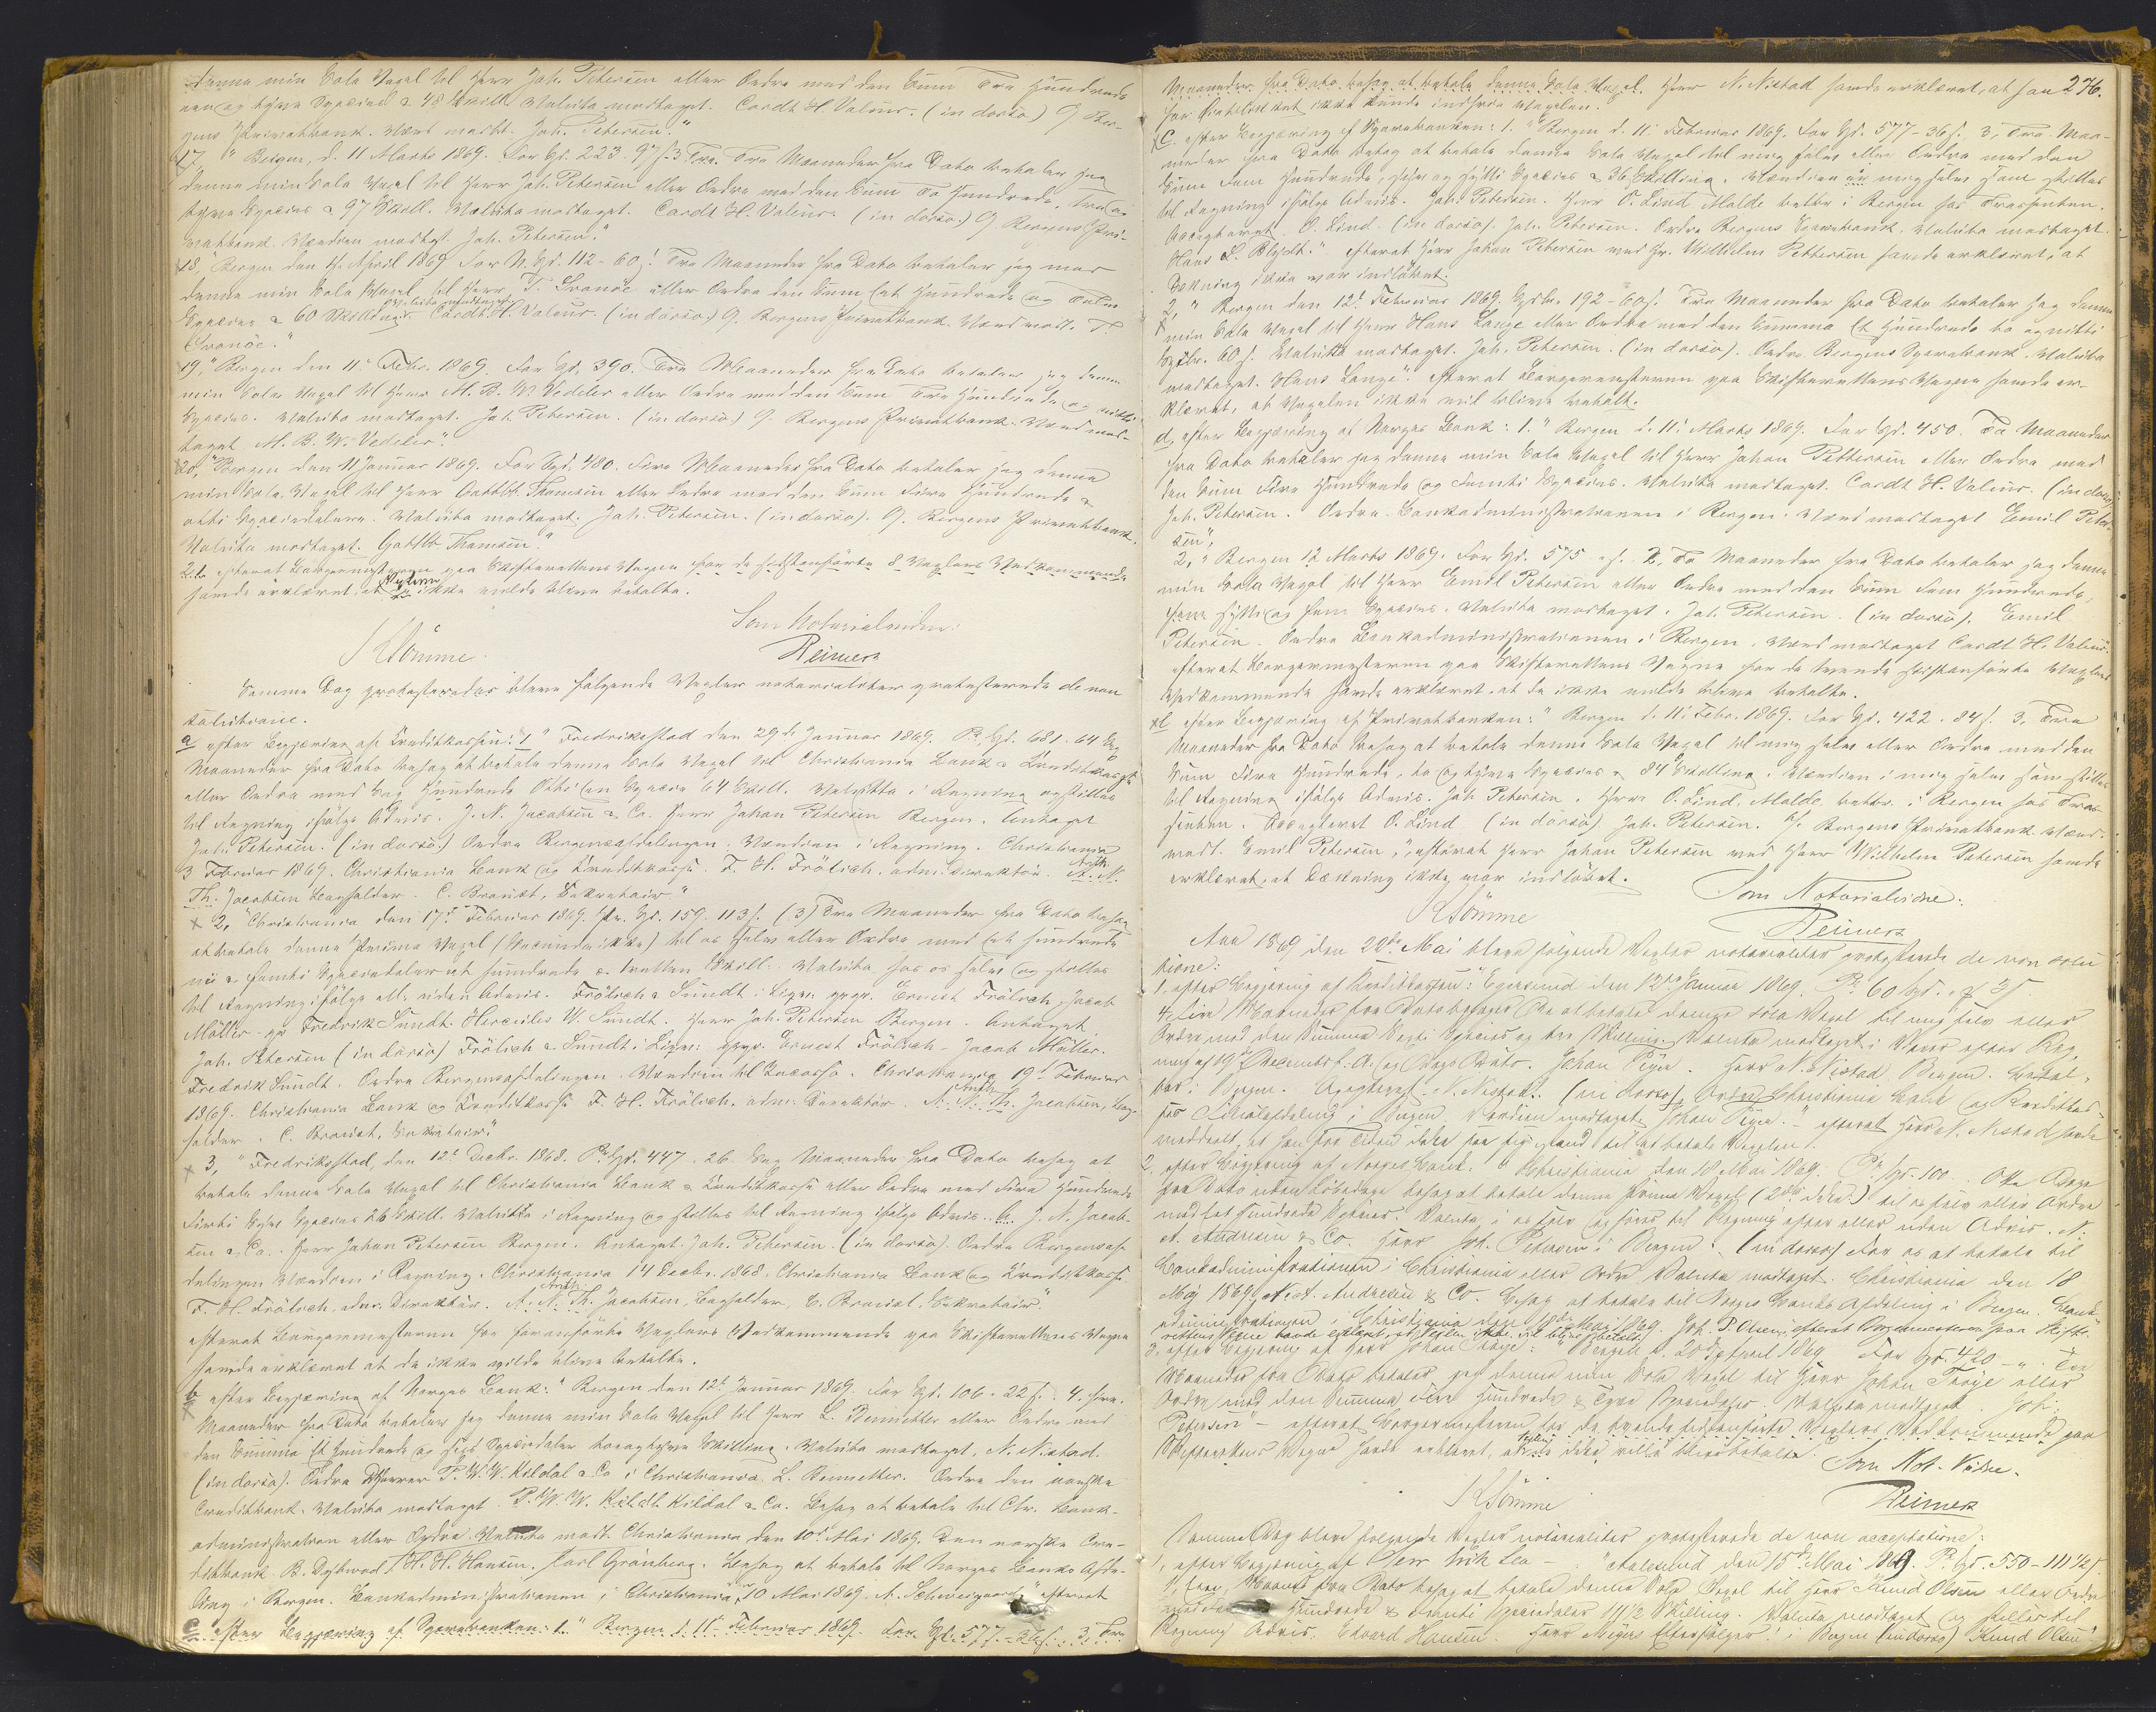 denne min Sola Vexel til Herr Joh. Petersen eller Ordre med den Sum Tre Hundrede
een og tyve Species & 48 Skill. Valuta modtaget. Cordt H. Valeur. (in dorso) O/ Ber-
gens Privatbank. Værd modt. Joh. Petersen."
17, "Bergen, d. 11 Marts 1869. For Spd. 223. 97 s. 3 Tre. Tre Maaneder fra Dato betaler jeg
denne min Sola Vexel til Herr Joh. Petersen eller Ordre med den Sum To Hundrede, Tre og
tyve Species & 97 Skill. Valuta modtaget. Cordt H. Valeur. (in dorso.) O/ Bergens Pri-
vatbank. Værdien modtgt. Joh. Petersen."
18, "Bergen den April 1869 For N. Spd. 112 - 60 s. Tre Maaneder fra Dato betaler jeg mod
denne min Sola Vexel til Herr T. Svanöe eller Ordre den Sum Et Hundrede og Tolv
Valuta modtaget.
Species & 60 Skilling. Cordt H. Valeur. (in dorso.) O/ Bergens Privatbank. Værd modt. T.
Svanöe."
19, "Bergen den 11te Febr. 1869. For Spd. 390. Tre Maaneder fra Dato betaler jeg denne
min Sola Vexel til Herr M. B. W. Vedeler eller Ordre med den Sum Tre Hundrede og nitti
Species. Valuta modtaget. Joh. Petersen. (in dorso) O/ Bergens Privatbank. Værd mod-
taget M. B. W. Vedeler."
20, "Bergen den 11 Januar 1869. For Spd. 480. Fire Maaneder fra Dato betaler jeg denne
min Sola Vexel til Herr Gottlb. Thomsen eller Ordre med den Sum Fire Hundrede &
otti Speciedalere. Valuta modtaget. Joh. Petersen. (in dorso). O/ Bergens Privatbank.
Valuta modtaget. Gottlb Thomsen."
efterat Borgermesteren paa Skifterettens Vegne for de sidstanførte 8 Vexlers Vedkommende
Vexlerne
havde erklæret, at de ikke vilde blive betalte.
Som Notarialvidne:
KSömme Reimers
Samme Dag protesteredes bleve følgende Vexler notarialiter protesterede de non
solutione.
a efter Begjæring af Kreditkassen: 1 "Fredrikstad den 29de Januar 1869. Pr. Spd. 681. 64 Sex
Maaneder fra Dato behag at betale denne Sola Vexel til Christiania Bank & Kreditkasse
eller Ordre med Sex Hundrede Otti een Specie 64 Skill. Valutta i Regning og stilles
til Regning ifølge Advis. J. N. Jacobsen & Co. Herr Johan Petersen Bergen. Antaget
Joh. Petersen. (in dorso.) Ordre Bergensafdelingen. Værdien i Regning. Christiania
3 Februar 1869. Christiania Bank og Kreditkasse. F. H. Frölich. adm. Direktör. A. N.
Anth.
Th. Jacobsen Bogholder. C. Brovist, Sekretair"
x 2, "Christiania den 17de Februar 1869. Pr. Spd. 159. 113 s. (3) Tre Maaneder fra Dato behag
at betale denne Prima Vexel (Secunda ikke) til os selv eller Ordre med Et hundrede
ni & femti Speciedaler et hundrede & tretten Skill. Valuta hos os selv og stilles
til Regning ifølge ell. uden Advis. Frölich & Sundt i Liqv: ppr. Ernest Frölich, Jacob
Möller - pp Fredrik Sundt. Hercules W. Sundt. Herr Joh. Petersen Bergen. Antaget
Joh. Petersen (in dorso) Frölich & Sundt i Liqv: ppr. Ernest Frölich - Jacob Möller.
Fredrik Sundt. Ordre Bergensafdelingen. Værdien til Incasso. Christiania 19de Februar
1869. Christiania Bank og Kreditkasse F. H. Frölich. adm. Direktör. A. N. Th. Jacobsen, Bog-
Anth.
holder. C. Brovist, Sekretair."
x 3, "Fredrikstad, den 12te Decbr. 1868. Pr. Spd. 447. 26. Sex Maaneder fra Dato behag at
betale denne Sola Vexel til Christiania Bank & Kreditkasse eller Ordre med Fire Hundrede
Firti Syv Species 26 Skill. Valutta i Regning og stilles til Regning ifølge Advis. J. N. Jacob-
sen & Co. Herr Johan Petersen Bergen. Antaget. Joh. Petersen. (in dorso). Ordre Bergensaf-
delingen Værdien i Regning. Christiania 14 Decbr. 1868. Christiania Bank og Kreditkasse.
Anth.
F. H. Frölich, adm. Direktör. A. N. Th. Jacobsen, Bogholder, C. Brovist, Sekretair".
efterat Borgermesteren for foranførte Vexlers Vedkommende paa Skifterettens Vegne
havde erklæret at de ikke vilde blive betalte.
b efter Begjæring af Norges Bank: "Bergen den 12te Januar 1869. For Spd. 106. 22 s. 4. fire.
x Maaneder fra Dato betaler jeg denne min Sola Vexel til Herr L. Bennetter eller Ordre med
den Summa Et hundrede og sex Speciedaler toogtyve Skilling. Valuta modtaget, N. Nistad.
(in dorso). Ordre Dherrer P. W. W. Kildal & Co i Christiania. L. Bennetter. Ordre den norske
Creditbank. Valuta modtaget. P. W. W. Kildal & Co. Behag at betale til Chr. Bank-
administration eller Ordre. Valuta modt. Christiania den 10de Mai 1869. Den norske Cre-
ditbank. B. Dybwad. H. H. Hansen. Karl Grönberg. Behag at betale til Norges Banks Afde-
ling i Bergen. Bankadministrationen i Christiania, 10 Mai 1869. A. Schweigaard", efterat
c. efter Begjæring af Sparebanken: 1. "Bergen d. 11te Februar 1869. For Spd. 577 - 36 s. 3, Tre
276.
Maaneder fra Dato behag at betale denne Sola Vexel. Herr N. Nistad havde erklæret, at han
for Øieblikket ikke kunde indfrie Vexelen.
x C. efter Begjæring af Sparebanken: 1. "Bergen d. 11 Februar 1869. For Spd. 577 - 36 s. 3, Tre. Maa-
neder fra Dato behag at betale denne Sola Vexel til mig selv eller Ordre med den
Sum Fem Hundrede, syv og sytti Species & 36 Skilling. Værdien i mig selv som stilles
til Regning ifølge Advis. Joh. Petersen. Herr O. Lind Molde betbr i Bergen hos Trassenten.
Accepteret O. Lind. (in dorso). Joh. Petersen. Ordre Bergens Sparebank. Valuta modtaget.
Hans D. Blÿdt." efterat Herr Johan Petersen ved Hr. Wilhelm Pettersen havde erklæret, at
Dækning ikke var indløbet.
2, "Bergen den 12te Februar 1869. Spdlr. 192 - 60 s. Tre Maaneder fra Dato betaler jeg denne
x min Sola Vexel til Herr Hans Lange eller Ordre med den Summa Et Hundrede to og nitti
Spdlr. 60 s. Valutta modtaget. Joh. Petersen. (in dorso). Ordre Bergens Sparebank. Valuta
modtaget. Hans Lange". efterat Borgermesteren paa Skifterettens Vegne havde er-
klæret, at Vexelen ikke vil blive betalt.
d, efter Begjæring af Norges Bank: 1. "Bergen d. 11te Marts 1869. For Spd. 450. To Maaneder
fra Dato betaler jeg denne min Sola Vexel til Herr Johan Pettersen eller Ordre med
den Sum Fire Hundrede og Femti Species. Valuta modtaget. Cordt H. Valeur. (in dorso)
Joh. Petersen. Ordre Bankadministrationen i Bergen. Værd modtaget Emil Peter-
sen",
2, "Bergen 12 Marts 1869. For Spd. 575 s. 2, To Maaneder fra Dato betaler jeg denne
min Sola Vexel til Herr Emil Petersen eller Ordre med den Sum Fem Hundrede,
fem Sytti og fem Species. Valuta modtaget. Joh. Petersen. (in dorso). Emil
Petersen. Ordre Bankadministrationen i Bergen. Værd modtaget Cordt H. Valeur"
efterat Borgermesteren paa Skifterettens Vegne for de tvende sidstanførte Vexlers
Vedkommende havde erklæret, at de ikke vilde blive betalte.
x e efter Begjæring af Privatbanken: "Bergen d. 11te Febr. 1869. For Spd. 422. 84 s. 3. Tre
Maaneder fra Dato behag at betale denne Sola Vexel til mig selv eller Ordre med den
Sum Fire Hundrede, to og tyve Species & 84 Skilling. Værdien i mig selv som stilles
til Regning ifølge Advis. Joh Petersen. Herr O. Lind, Molde betbr. i Bergen hos Tras-
senten. Accepteret O. Lind (in dorso) Joh. Petersen. O/ Bergens Privatbank Værd-
modt. Emil Petersen", efterat Herr Johan Petersen ved Herr Wilhelm Petersen havde
erklæret, at Dækning ikke var indløbet.
Som Notarialvidne.
KSömme Reimers
Aar 1869 den 22de Mai bleve følgende Vexler notarialiter protesterede de non solu-
tione:
1. efter Begjæring af Kreditkassen: "Egersund den 12te Januar 1869. Pr. 60 Spd.
4, fire Maaneder fra Dato behager De at betale denne Sola Vexel til mig selv eller
Ordre med den Summa Species og tre Skilling. Valuta modtaget i Varer efter Reg-
ning af 19de December f. A. Johan Feyer. Herr N. Nistad Bergen. Betal-
bar i Bergen. Accepteret N. Nistad. (in dorso) Ordre Christiania Bank og Kreditkas-
ses Filialafdeling i Bergen Værdien modtaget. Johan Feyer." - efterat Herr N. Nistad havde
meddeelt, at han for Tiden ikke saa sig istand til at betale Vexelen.
2. efter Begjæring af Norges Bank: "Christiania den 18 Mai 1869. Pr. Spd. 100. Otte Dage
fra Dato uden Løbedage behag at betale denne Prima Vexel (2da ikke) til os selv eller Ordre
med Et Hundrede Species. Valuta i os selv og føres til Regning efter eller uden Advis. N.
A. Andresen & Co. Herr Joh. Petersen i Bergen. (in dorso) For os at betale til
Bankadministrationen i Christiania eller Ordre Valuta modtaget. Christiania den 18
Mai 1869 N. A. Andresen & Co. Behag at betale til Norges Banks Afdeling i Bergen. Bank-
administrationen i Christiania den Mai 1869. Joh. P. Olsen, efterat Borgermesteren paa Skifte-
rettens Vegne havde erklæret, at Vexlen ikke vil blive betalt.
3. efter Begjæring af Herr Johan Trøye: "Bergen d. 20de April 1869 For Spd. 420 - ". Een
Maaneder fra Dato betaler jeg denne min Sola Vexel til Herr Johan Trøye eller
Ordre med den Summa Fire Hundrede & Tyve Speciedaler. Valuta modtaget. Joh.
Petersen" - efterat Borgermesteren for de tvende sidstanførte Vexlers Vedkommende paa
Skifterettens Vegne havde erklæret, at de ikke ville blive betalte.
Som Not. Vidne.
KSömme Reimers
Samme Dag bleve følgende Vexler notarialiter protesterede de non acceptatione:
1, efter Begjæring af Herr Erik Lea - "Aalesund den 15de Mai 1869. Pr. Spd. 550 - 111½ s.
Maaned fra Dato behag at betale denne Sola Vexel til Herr Knud Olsen eller Ordre
Hundrede & femti Speciedaler 111½ Skilling. Valuta modtaget og stilles til
Regning Advis. Edvard Hansen. Herr Meyers Efterfølger i Bergen (in dorso) Knud Olsen"